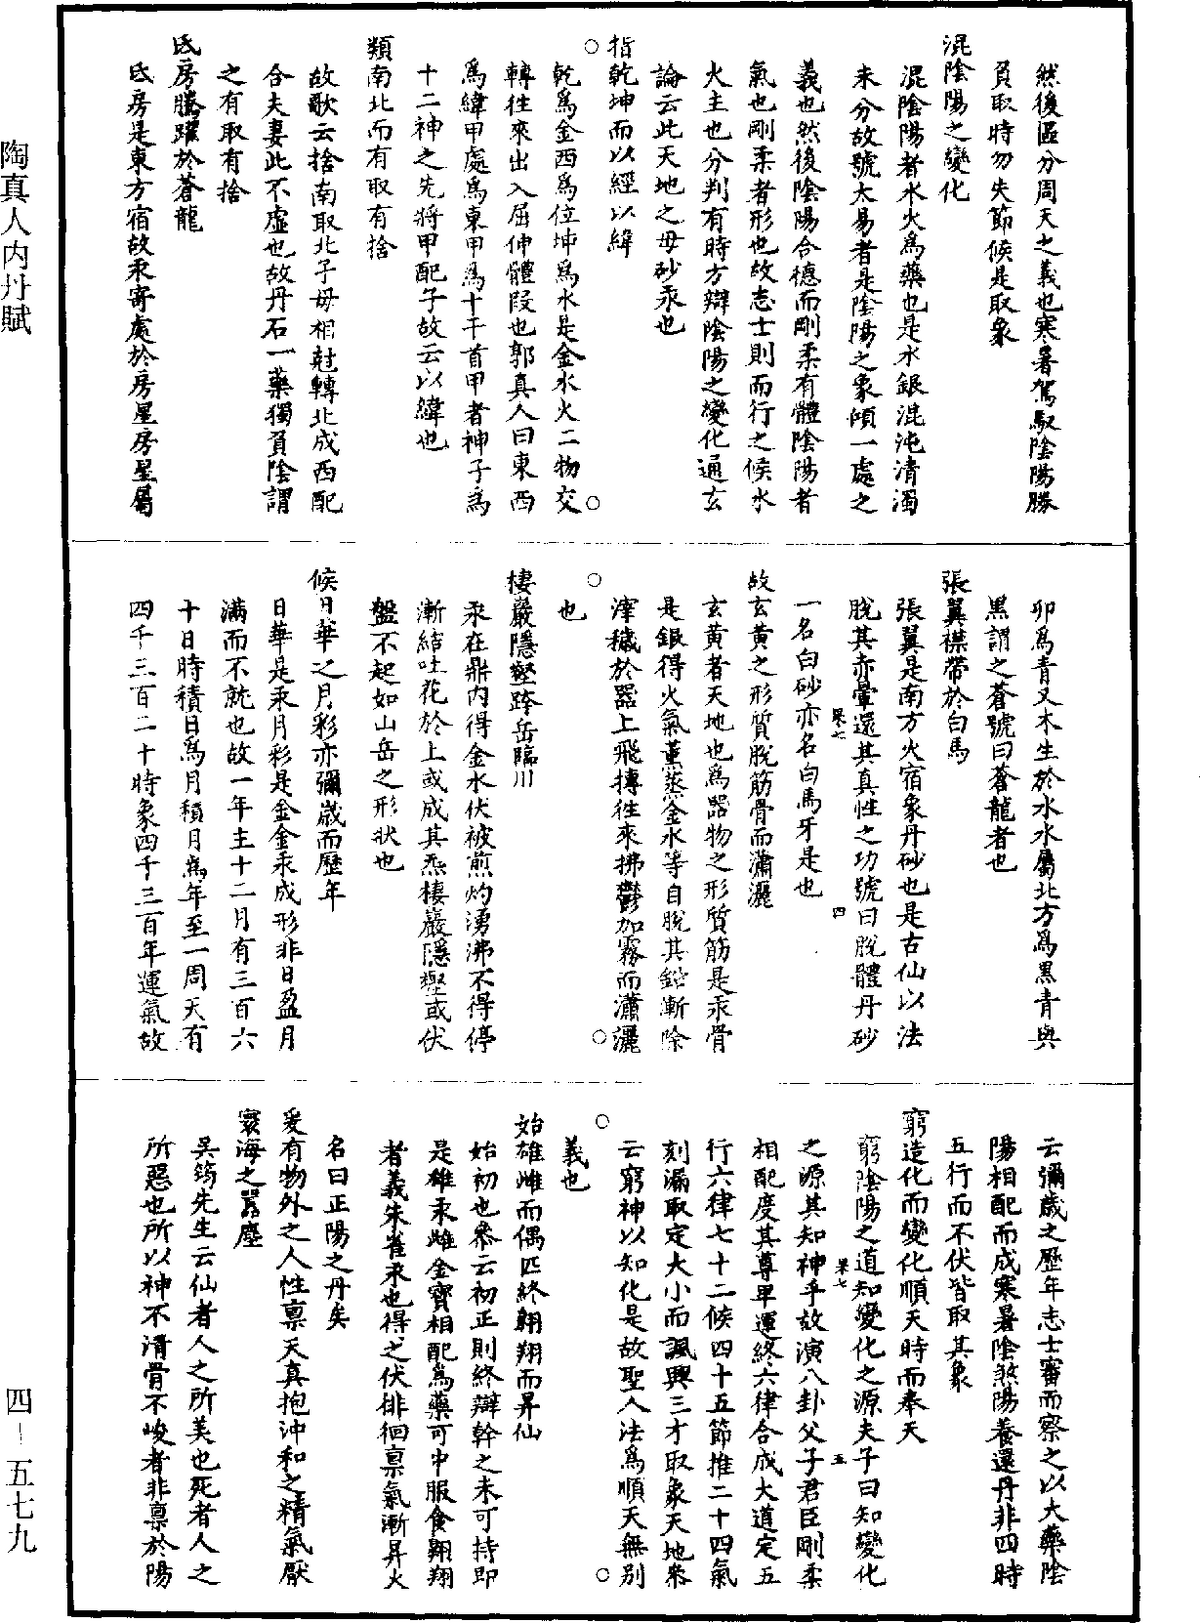 然後區分周天之義也寒暑駕馭陰陽勝
負取時勿失節候是取象
混陰陽之變化
混陰陽者水火爲藥也是水銀混沌清濁
未分故號太易者是陰陽之象傾一處之
義也然後陰陽合德而剛柔有體陰陽者
氣也剛柔者形也故志士則而行之候水
火主也分判有時方辯陰陽之變化通玄
論云此天地之母砂汞也
指乾坤而以經以緯
乾爲金西爲位坤爲水是金水火二物交
轉往來出入屈伸體段也郭真人曰東西
爲緯甲處爲東甲爲十干首甲者神子爲
十二神之先將甲配子故云以緯也
類南北而有取有捨
故歌云捨南取北子母相尅轉北成西配
合夫妻此不虛也故丹石一藥獨負陰謂
之有取有捨
氐房騰躍於蒼龍
氐房是東方宿故汞寄處於房星房星屬
卯爲青又木生於水水屬北方爲黑青與
黑謂之蒼號曰蒼龍者也
張翼襟帶於白馬
張翼是南方火宿象丹砂也是古仙以法
脫其赤暈還其真性之功號曰脫體丹砂
果七 四
一名白砂亦名白馬牙是也
故玄黃之形質脫筋骨而瀟灑
玄黃者天地也爲器物之形質筋是汞骨
是銀得火氣薰蒸金水等自脫其鉛漸除
滓穢於器上飛摶往來拂鬱如霧而瀟灑
也
棲巖隱壑跨岳臨川
汞在鼎內得金水伏被煎灼湧沸不得停
漸結吐花於上或成其炁棲巖隱壑或伏
盤不起如山岳之形狀也
候日華之月彩亦彌歲而歷年
日華是汞月彩是金金汞成形非日盈月
滿而不就也故一年主十二月有三百六
十日時積日爲月積月爲年至一周天有
四千三百二十時象四千三百年運氣故
云彌歲之歷年志士審而察之以大藥陰
陽相配而成寒暑陰煞陽養還丹非四時
五行而不伏皆取其象
窮造化而變化順天時而奉天
窮陰陽之道知變化之源夫子曰知變化
果七 五
之源其知神乎故演八卦父子君臣剛柔
相配度其尊卑運終六律合成大道定五
行六律七十二候四十五節推二十四氣
刻漏取定大小而諷興三才取象天地叅
云窮神以知化是故聖人法爲順天無別
義也
始雄雌而偶匹終翱翔而昇仙
始初也叅云初正則終辯幹之未可持即
是雄汞雌金寶相配爲藥可中服食翱翔
者義朱雀汞也得之伏徘徊禀氣漸昇火
名曰正陽之丹矣
爰有物外之人性禀天真抱沖和之精氣厭
寰海之囂塵
吳筠先生云仙者人之所美也死者人之
所惡也所以神不清骨不峻者非禀於陽
陶真人內丹賦
四－五七九